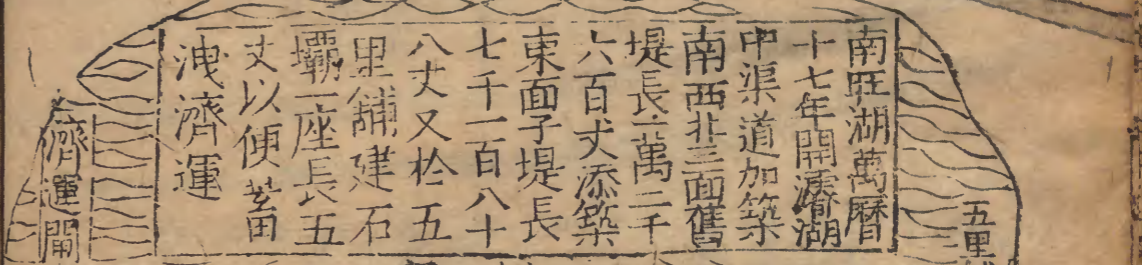 五里
南旺湖萬曆
十七年開濬湖
中渠道加築
南西北三面舊
堤長一萬二千
六百丈添築
東面子堤長
七千一百八十
八丈又於五
里舖建石
壩一座長五
丈以便蓄
洩濟運
濟運閘